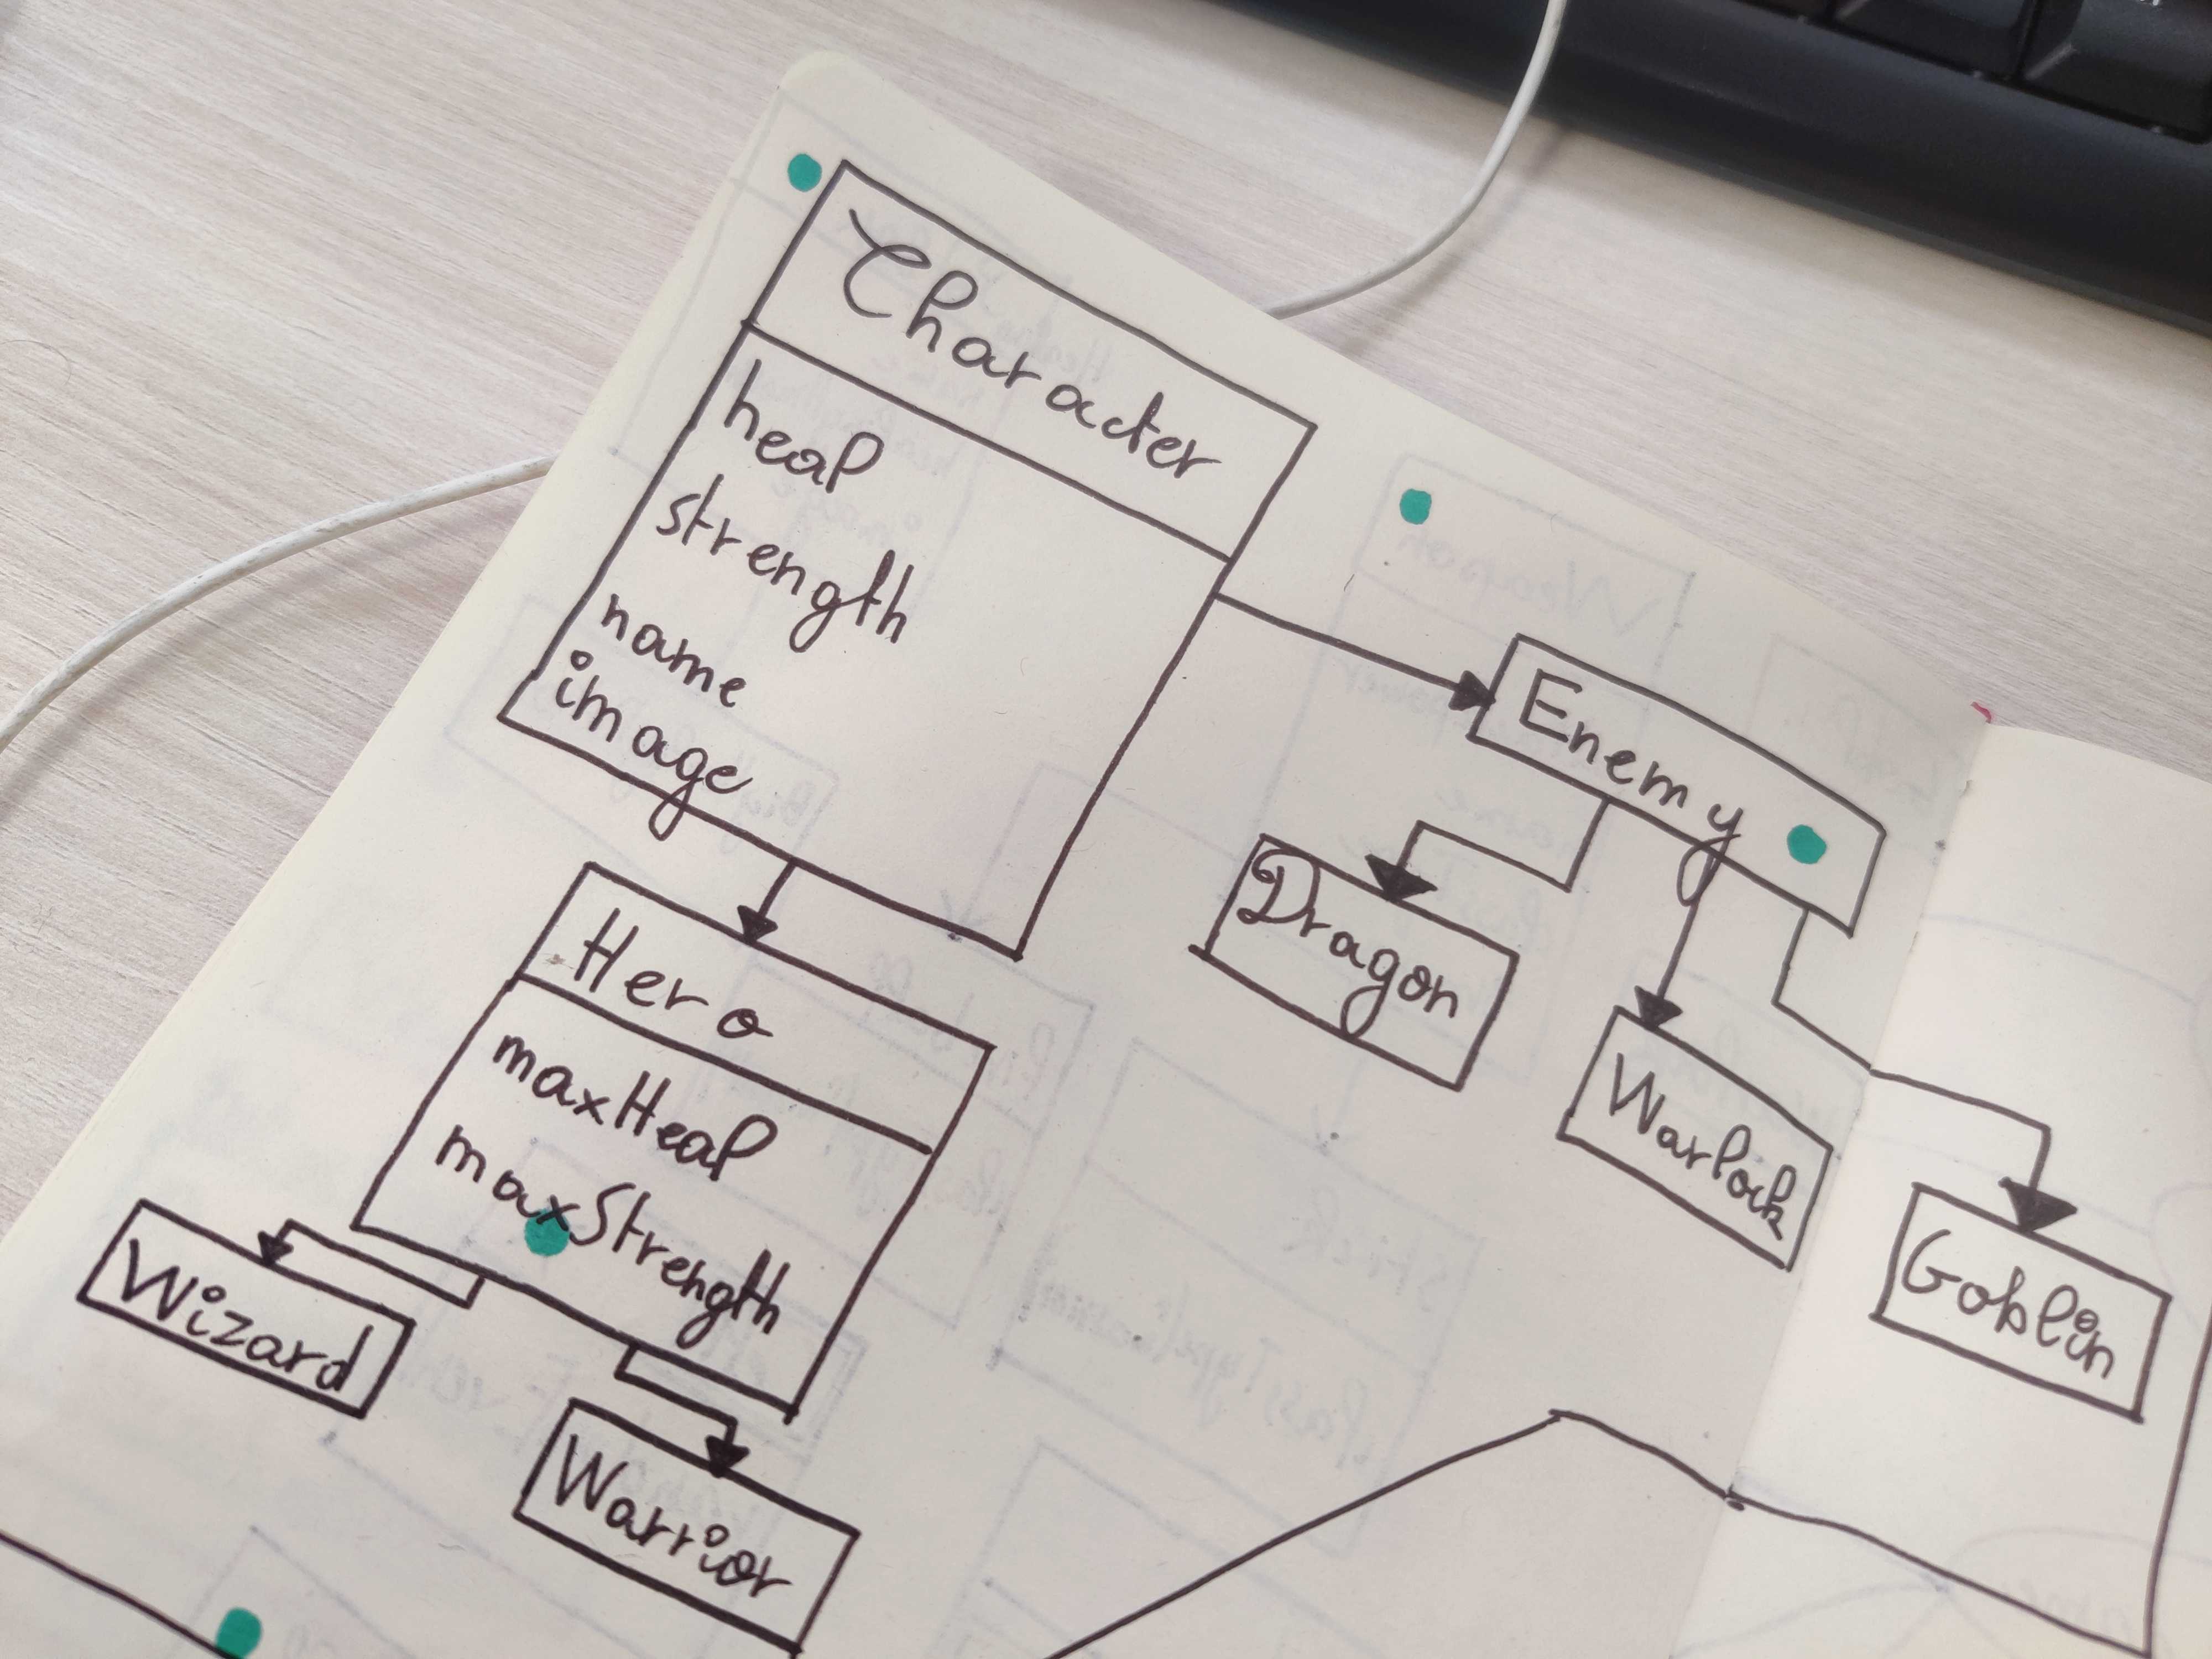 Character
heal
strength
name
image
Enemy
Dragon
Warlock
Goblin
Hero
maxHeal
maxStrength
Wizard
Warrior